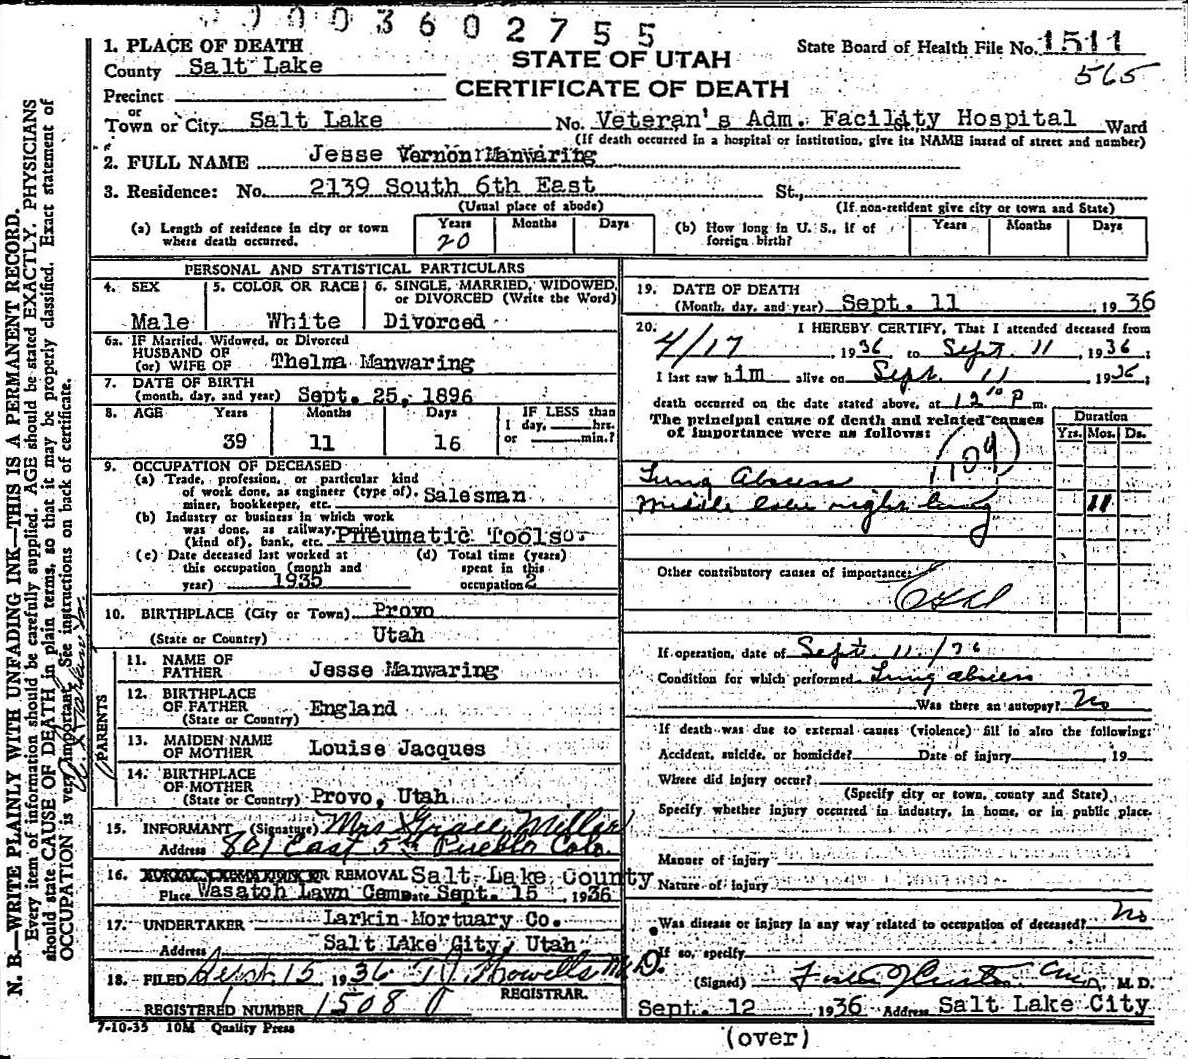 003602755
1. PLACE OF DEATH
County Salt Lake
STATE OF UTAH
CERTIFICATE OF DEATH
State Board of Health File No. 1511
565
Precinct
or
Town or City Salt Lake No. Veteran's Adm. Facility Hospital Ward
(If death occurred in a hospital or institution, give its NAME instead of street and number)
2. FULL NAME Jesse Vernon Manwaring
3. Residence: No. 2139 South 6th East St.,
(Usual place of abode) (If non-resident give city or town and State)
(a) Length of residence in city or town where death occurred. Years 20 Months Days
(b) How long in U. S., if of foreign birth? Years Months Days
PERSONAL AND STATISTICAL PARTICULARS
4. SEX Male
5. COLOR OR RACE White
6. SINGLE, MARRIED, WIDOWED, or DIVORCED (Write the Word) Divorced
6a. IF Married, Widowed, or Divorced
HUSBAND OF
(or) WIFE OF Thelma Manwaring
7. DATE OF BIRTH
(month, day, and year) Sept. 25, 1896
8. AGE Years Months Days IF LESS than
1 day, hrs.
or min.?
39 11 16
9. OCCUPATION OF DECEASED
(a) Trade, profession, or particular kind
of work done, as engineer (type of), Salesman
miner, bookkeeper, etc.
(b) Industry or business in which work
was done, as railway, mine
(kind of), bank, etc. Pneumatic Tools
(c) Date deceased last worked at
this occupation (month and
year) 1935
(d) Total time (years)
spent in this
occupation 2
10. BIRTHPLACE (City or Town) Provo
(State or Country) Utah
PARENTS
11. NAME OF
FATHER Jesse Manwaring
12. BIRTHPLACE
OF FATHER England
(State or Country)
13. MAIDEN NAME
OF MOTHER Louise Jacques
14. BIRTHPLACE
OF MOTHER
(State or Country) Provo, Utah
15. INFORMANT (Signature) Mrs Grace Miller
Address 801 East 5th Pueblo Colo.
16. OR REMOVAL Salt Lake County
Place Wasatch Lawn Cem. Date Sept. 15 1936
17. UNDERTAKER Larkin Mortuary Co.
Address Salt Lake City, Utah
18. FILED Sept. 15 1936 T J Howells M.D.
REGISTRAR.
REGISTERED NUMBER 1508
7-10-35 10M Quality Press
19. DATE OF DEATH
(Month, day, and year) Sept. 11 1936
20. I HEREBY CERTIFY, That I attended deceased from
4/17, 1936 to Sept. 11, 1936;
I last saw him alive on Sept. 11 1936;
death occurred on the date stated above, at 12 10 P m.
The principal cause of death and related causes
of importance were as follows: Duration
Yrs. Mos. Ds.
(109)
Lung Abscess
Middle lobe right lung 11
Other contributory causes of importance:
If operation, date of Sept. 11/36
Condition for which performed Lung abscess
Was there an autopsy? No
If death was due to external causes (violence) fill in also the following:
Accident, suicide, or homicide? Date of injury 19
Where did injury occur?
(Specify city or town, county and State)
Specify whether injury occurred in industry, in home, or in public place.
Manner of injury
Nature of injury
Was disease or injury in any way related to occupation of deceased? No
If so, specify
(Signed) M. D.
Sept. 12 1936 Address Salt Lake City
(over)
N. B.—WRITE PLAINLY WITH UNFADING INK—THIS IS A PERMANENT RECORD.
Every item of information should be carefully supplied. AGE should be stated EXACTLY. PHYSICIANS
should state CAUSE OF DEATH in plain terms, so that it may be properly classified. Exact statement of
OCCUPATION is very important. See instructions on back of certificate.